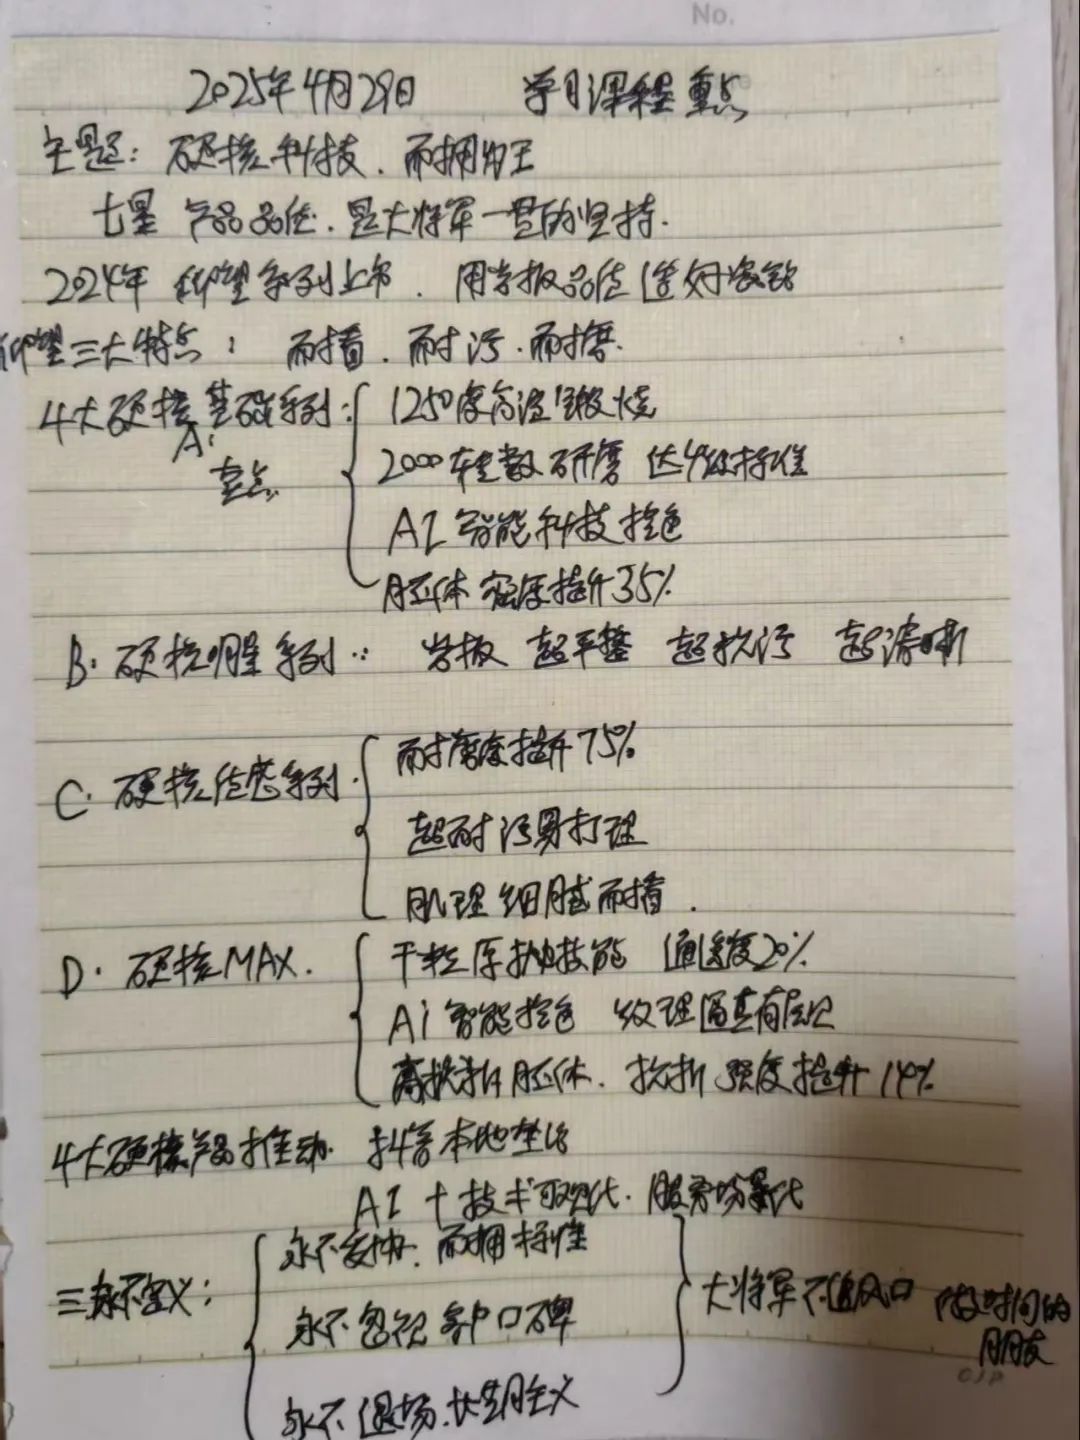 No.
2025年4月29日 学习课程重点
主题：硬核科技．耐用为王
七星 产品品质．是大将军一贯的坚持.
2024年 仰望系列上市．用岩板品质造好瓷砖
仰望三大特点： 耐看．耐污．耐磨.
4大硬核基础系列：
A'
重点
1250度高温煅烧
2000转数研磨 达4级标准
AI 智能科技控色
胚体强度提升35%
B. 硬核明星系列： 岩板 超平整 超抗污 超清晰
C. 硬核质感系列.
耐磨度提升75%
超耐污易打理
肌理细腻耐看.
D. 硬核MAX.
干粒厚抛技能 通透度20%
Ai智能控色 纹理逼真有层次
高抗折胚体．抗折强度提升14%
4大硬核产品推动. 抖音本地生活
AI＋技术可视化．服务场景化
三永不定义：
永不妥协．耐用标准
永不忽视 客户口碑
永不退场．长期主义
大将军不追风口 做时间的
朋友